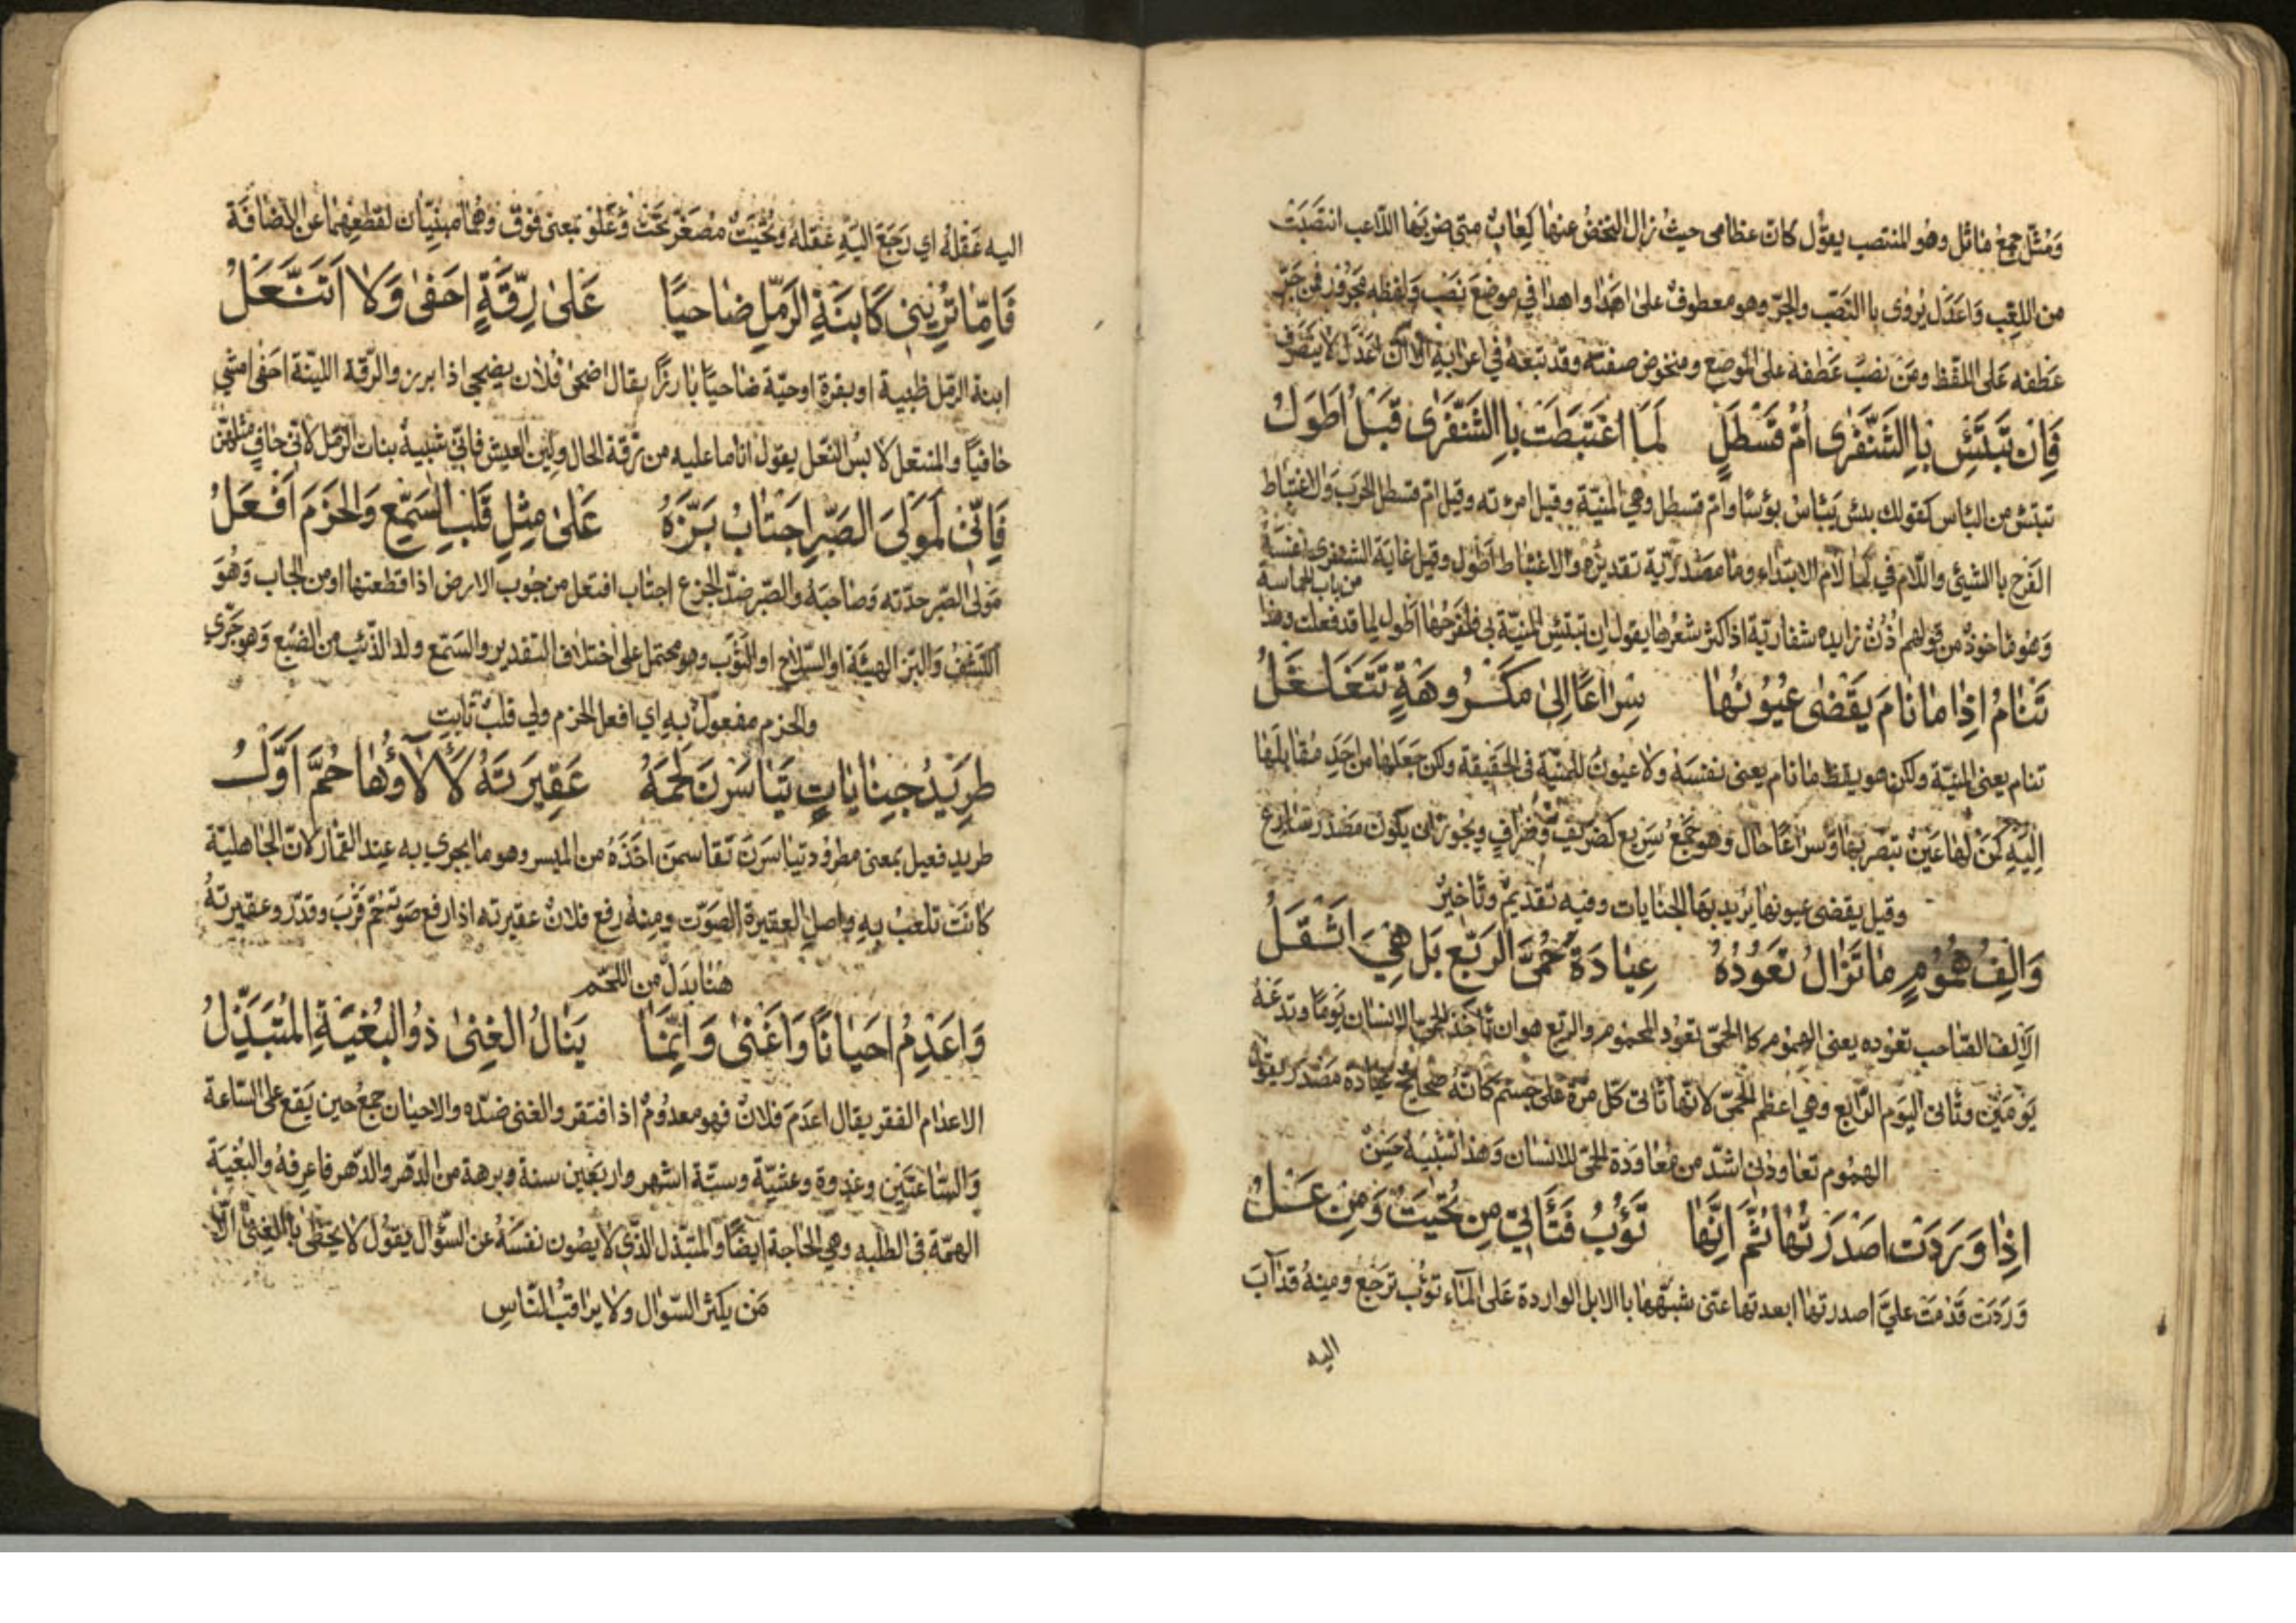 وَمُثَّلٌ جمع ماثل وهو المنتصب يقول كان عظامى حيث نزال التخضُ عنها كِعابٌ متى ضربَها اللاعب انتصَبَتْ
من اللعِب وَاعَدَل يُروى باالنَصب والجرّ وهو معطوفٌ على اهدا واهدا في موضع نصب وَلفظه مجرور فمن جَرّ
عَطفه عَلى اللفظ ومَن نصبَ عَطفه على الموضع ومنخوض صفته وقد تبعه في اعرابه الا انّ اعدَلَ لا ينصرف
فَاِن تَبتَئِس بِاالشَنفَرى اُمّ قَسْطَلٍ لَمَا اغتَبَطَت بِاالشَنفَرى قَبلُ اَطوَلُ
تبتئس من البأس كقولك بئس يَبْأسُ بؤسًا وامّ قسطل وهي المنيّة وقيل امرئته وقيل امّ قسطل الحرب وَالاغتباط
الفَرح باالشيئ واللام في لما لام الابتداء وما مصدريّة تقديره والاغتباط اطول وقيل غاية الشنفرى
من باب الحماسة
وهُو ماخوذٌ من قولهم اُذُنٌ شفاريّة اذا كثر شعرُها يقول ان تبتئس المنيّة بي فلفرَحُها اَطول لما قد فعلت وهذا
تَنامُ اِذا ما نامَ يَقْضى عيُونُها سِراعًا اِلى مَكرُوهَةٍ تَتَغَلغَلُ
تنام يعنى المنيّة ولكن هو يقظ ما نام يعنى بنفسَه ولا عيونُ للمنيّة فى الحقيقة ولكن جَعلها من اَحَدِ مُقابلَها
اِليهِ كَمَنْ لها عَينٌ تبصر بها وَسراعًا حال وهو جَمْعُ سَرِيع كضريفٌ وضرافٍ ويجوز ان يكون مصدر سارع
وقيل يقضى عيونها يريد بها الجنايات وفيه تقديم وتاخيرٌ
وَاِلفُ همُومٍ ما تَزالُ تَعُودُهُ عِيادَةَ حُمّى الرِبْعِ بَل هِيَ اَثقَلُ
الاِلف الصّاحب تعوده يعنى الهموم كا الحمّى تعود المحموم والربع هو ان تاخذ الحمّى الانسان يومًا وتدعَهُ
يومَين وتأتى اليَوم الرّابع وهي اعظم الحمّى لانّها تأتى كلّ مرّة على جسم كانّه صحايح عيادة مَصدَر يقول
الهموم تعاودنى اشدّ من مُعاودَة الحمّى للانسان وَهذا تشبيهٌ حسَنٌ
اِذا وَرَدَت اصدَرتُها ثُمَّ اِنَّها تَؤُبُ فَتَأتي مِن تُحَيتُ وَمِن عَلُ
وَرَدَت قَدمَت عليَّ اصدرتها ابعدتها عنّى شبّهها باالابل الواردة عَلى المآء تؤب ترجع ومنهُ قد آبَ
اليه
اليه عَقلهُ اي رَجَعَ اليَهِ عقلهُ وتُحَيت مُصَغّر تحت وَعَلو بمعنى فوق وهما مبنيّان لقطعِهما عن الاضافة
فَاِمّا تَرَينى كَابنَةِ الرَملِ ضاحيًا عَلى رِقّةٍ اَحفى وَلا اَتَنَعَّلُ
ابنة الرّمل ظبية او بقرة او حيّة ضاحيًا بارزًا يقال اضحى فلان يضحي اذا برز والرّقة الليّنة احفى امشي
حافيًا والمنتعل لابسُ النّعل يقول انا ما عليه من رقة الحال ولين العيش فاِنّى شبيهُ بنات الرّمل لانى حافٍ مثلهنّ
فَاِنّى لَمَولَى الصَبرِ اجتابُ بَزَّهُ عَلى مِثلِ قَلبِ السَمّعِ وَالحَزمَ اَفعَلُ
مَولى الصّبر جدّته وصَاحبَه والصّبر ضدّ الجزع اجتاب افتعل من جُوب الارض اذا قطعتها او من الجاب وَهُوَ
الكشف وَالبَز الهيئَة او السّلاح او الثَوب وهو محتمل على اختلاف التقدير والسَمّع ولد الذّئب من الضَبع وَهو جرّي
والحزم مفعولٌ بهِ اي افعل الحزم ولي قلبٌ ثابت
طرِيدُ جِناياتٍ تَياسَرنَ لحمَهُ عَقِيرَتهُ لَالاَوُهَا حُمَّ اَوَّلُ
طريد فعيل بمعنى مطرود تياسَرنَ تقاسمنَ اخَذَهُ من الميسر وهو ما يجري به عند القمار لانّ الجاهليّة
كانَت تلعبُ بهِ واصل العقيرة الصَوت ومنهُ رفع فلانٌ عقيرته اذا رفع صَوته حُمّ قرب وقدّر وعقيرتهُ
هُنا بَدَلٌ من اللّحم
وَاعَدِمُ احيانًا وَاَغنى وَاِنّما يَنالُ الغِنى ذُو البُغيَةِ المُتَبَذِّلُ
الاعدام الفقر يقال اعدَم فلانٌ فهو معدُومٌ اذا افتقر والغنى ضدّه والاحيان جمعُ حين يَقع على السّاعة
وَالسّاعتَين وغدوة وعشيّة وستّة اشهر واربَعين سنة وبرهة من الدّهر والدّهر فاعرفهُ والبُغيَة
الهمّة فى الطلبه وهي الحاجة ايضًا وَالمتبذّل الّذي لا يصُون نفسَهُ عن السّؤال يقول لا يحظى باالغِنى الّا
مَن يكثر السّوال ولا يراقبُ النّاسِ